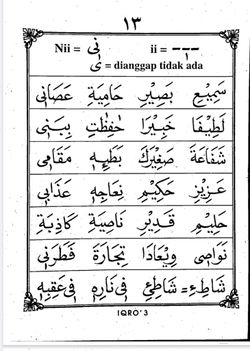 ١٣
Nii = نِى ii = ـِـيـ
ي = dianggap tidak ada
سَمِيْعِ بَصِيْرِ حَامِيَةِ عَصَانِى
لَطِيْفًا خَبِيْرًا حَفِظْتِ بِبَنِى
شَفَاعَةَ صَغِيْرَكَ بَطِيْهِ مَقَامِى
عَزِيْزِ حَكِيْمِ نِعَاجِهِ عَذَابِى
حَلِيْمِ قَدِيْرِ نَاصِيَةِ كَاذِبَةِ
نَوَاصِى وِيْعَادَا تِجَارَةَ فَطَرَنِى
شَاطِئِ = شَاطِئِ فِى نَارِهِ فِى عَقِبِهِ
IQRO' 3